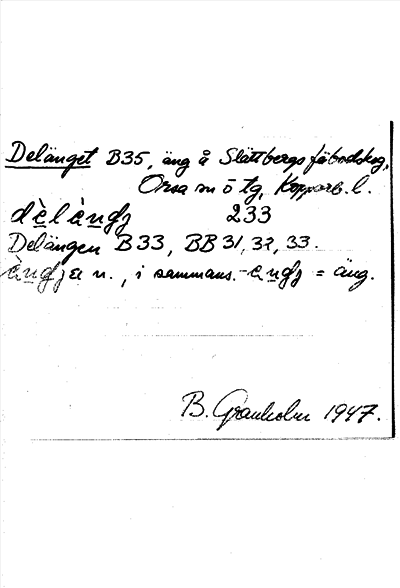 Delänget B35, äng å Slättbergs fäbodskog,
Orsa sn ö tg, Kopparb. l.
dèlàngj 233
Delängen B33, BB31, 32, 33.
àngjä n., i sammans. -àngj = äng.
B. Granholm 1947.